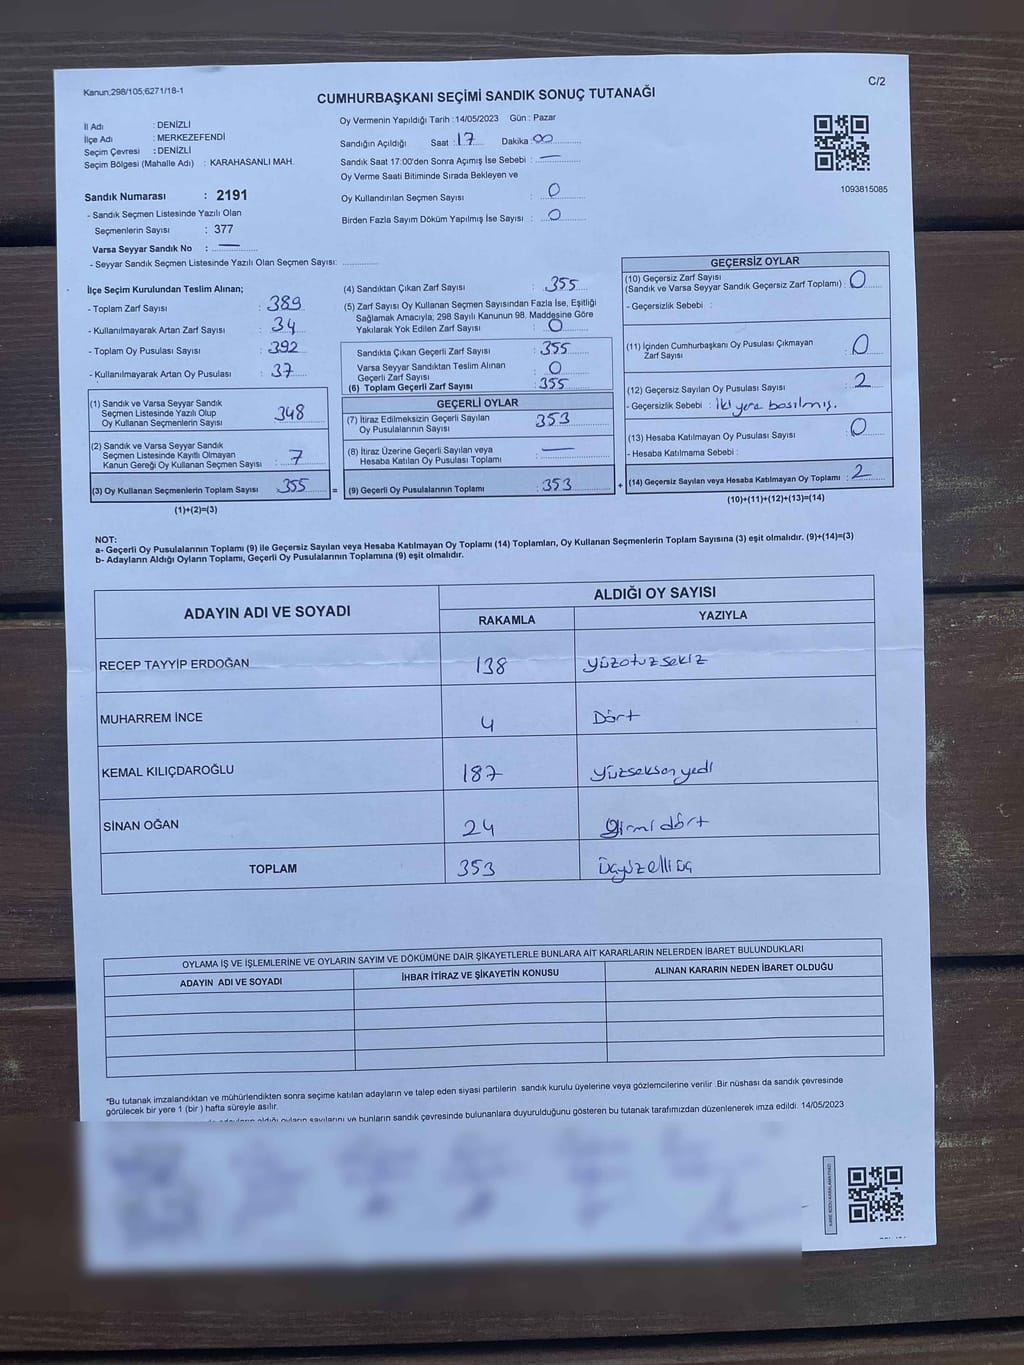 Kanun;298/105;6271/18-1
C/2
CUMHURBAŞKANI SEÇİMİ SANDIK SONUÇ TUTANAĞI
İl Adı : DENİZLİ
İlçe Adı : MERKEZEFENDİ
Seçim Çevresi : DENİZLİ
Seçim Bölgesi (Mahalle Adı) : KARAHASANLI MAH.
Sandık Numarası : 2191
- Sandık Seçmen Listesinde Yazılı Olan
Seçmenlerin Sayısı : 377
Varsa Seyyar Sandık No : —
- Seyyar Sandık Seçmen Listesinde Yazılı Olan Seçmen Sayısı: ..............
Oy Vermenin Yapıldığı Tarih :14/05/2023 Gün : Pazar
Sandığın Açıldığı Saat :17 Dakika :00
Sandık Saat 17:00'den Sonra Açımış İse Sebebi : —
Oy Verme Saati Bitiminde Sırada Bekleyen ve
Oy Kullandırılan Seçmen Sayısı : 0
Birden Fazla Sayım Döküm Yapılmış İse Sayısı : 0
1093815085
İlçe Seçim Kurulundan Teslim Alınan;
- Toplam Zarf Sayısı : 389
- Kullanılmayarak Artan Zarf Sayısı : 34
- Toplam Oy Pusulası Sayısı : 392
- Kullanılmayarak Artan Oy Pusulası : 37
(1) Sandık ve Varsa Seyyar Sandık
Seçmen Listesinde Yazılı Olup
Oy Kullanan Seçmenlerin Sayısı : 348
(2) Sandık ve Varsa Seyyar Sandık
Seçmen Listesinde Kayıtlı Olmayan
Kanun Gereği Oy Kullanan Seçmen Sayısı : 7
(3) Oy Kullanan Seçmenlerin Toplam Sayısı : 355
(1)+(2)=(3)
=
(4) Sandıktan Çıkan Zarf Sayısı : 355
(5) Zarf Sayısı Oy Kullanan Seçmen Sayısından Fazla İse, Eşitliği
Sağlamak Amacıyla; 298 Sayılı Kanunun 98. Maddesine Göre
Yakılarak Yok Edilen Zarf Sayısı : 0
Sandıkta Çıkan Geçerli Zarf Sayısı : 355
Varsa Seyyar Sandıktan Teslim Alınan
Geçerli Zarf Sayısı : 0
(6) Toplam Geçerli Zarf Sayısı : 355
GEÇERLİ OYLAR
(7) İtiraz Edilmeksizin Geçerli Sayılan
Oy Pusulalarının Sayısı : 353
(8) İtiraz Üzerine Geçerli Sayılan veya
Hesaba Katılan Oy Pusulası Toplamı : —
(9) Geçerli Oy Pusulalarının Toplamı : 353
+
GEÇERSİZ OYLAR
(10) Geçersiz Zarf Sayısı
(Sandık ve Varsa Seyyar Sandık Geçersiz Zarf Toplamı) : 0
- Geçersizlik Sebebi :
(11) İçinden Cumhurbaşkanı Oy Pusulası Çıkmayan
Zarf Sayısı : 0
(12) Geçersiz Sayılan Oy Pusulası Sayısı : 2
- Geçersizlik Sebebi : İki yere basılmış.
(13) Hesaba Katılmayan Oy Pusulası Sayısı : 0
- Hesaba Katılmama Sebebi :
(14) Geçersiz Sayılan veya Hesaba Katılmayan Oy Toplamı : 2
(10)+(11)+(12)+(13)=(14)
NOT:
a- Geçerli Oy Pusulalarının Toplamı (9) ile Geçersiz Sayılan veya Hesaba Katılmayan Oy Toplamı (14) Toplamları, Oy Kullanan Seçmenlerin Toplam Sayısına (3) eşit olmalıdır. (9)+(14)=(3)
b- Adayların Aldığı Oyların Toplamı, Geçerli Oy Pusulalarının Toplamına (9) eşit olmalıdır.
ADAYIN ADI VE SOYADI
ALDIĞI OY SAYISI
RAKAMLA YAZIYLA
RECEP TAYYİP ERDOĞAN 138 yüzotuzsekiz
MUHARREM İNCE 4 Dört
KEMAL KILIÇDAROĞLU 187 yüzseksenyedi
SİNAN OĞAN 24 yirmi dört
TOPLAM 353 üçyüzelliüç
OYLAMA İŞ VE İŞLEMLERİNE VE OYLARIN SAYIM VE DÖKÜMÜNE DAİR ŞİKAYETLERLE BUNLARA AİT KARARLARIN NELERDEN İBARET BULUNDUKLARI
ADAYIN ADI VE SOYADI İHBAR İTİRAZ VE ŞİKAYETİN KONUSU ALINAN KARARIN NEDEN İBARET OLDUĞU
*Bu tutanak imzalandıktan ve mühürlendikten sonra seçime katılan adayların ve talep eden siyasi partilerin sandık kurulu üyelerine veya gözlemcilerine verilir .Bir nüshası da sandık çevresinde
görülecek bir yere 1 (bir ) hafta süreyle asılır.
aldığı oyların sayılarını ve bunların sandık çevresinde bulunanlara duyurulduğunu gösteren bu tutanak tarafımızdan düzenlenerek imza edildi. 14/05/2023